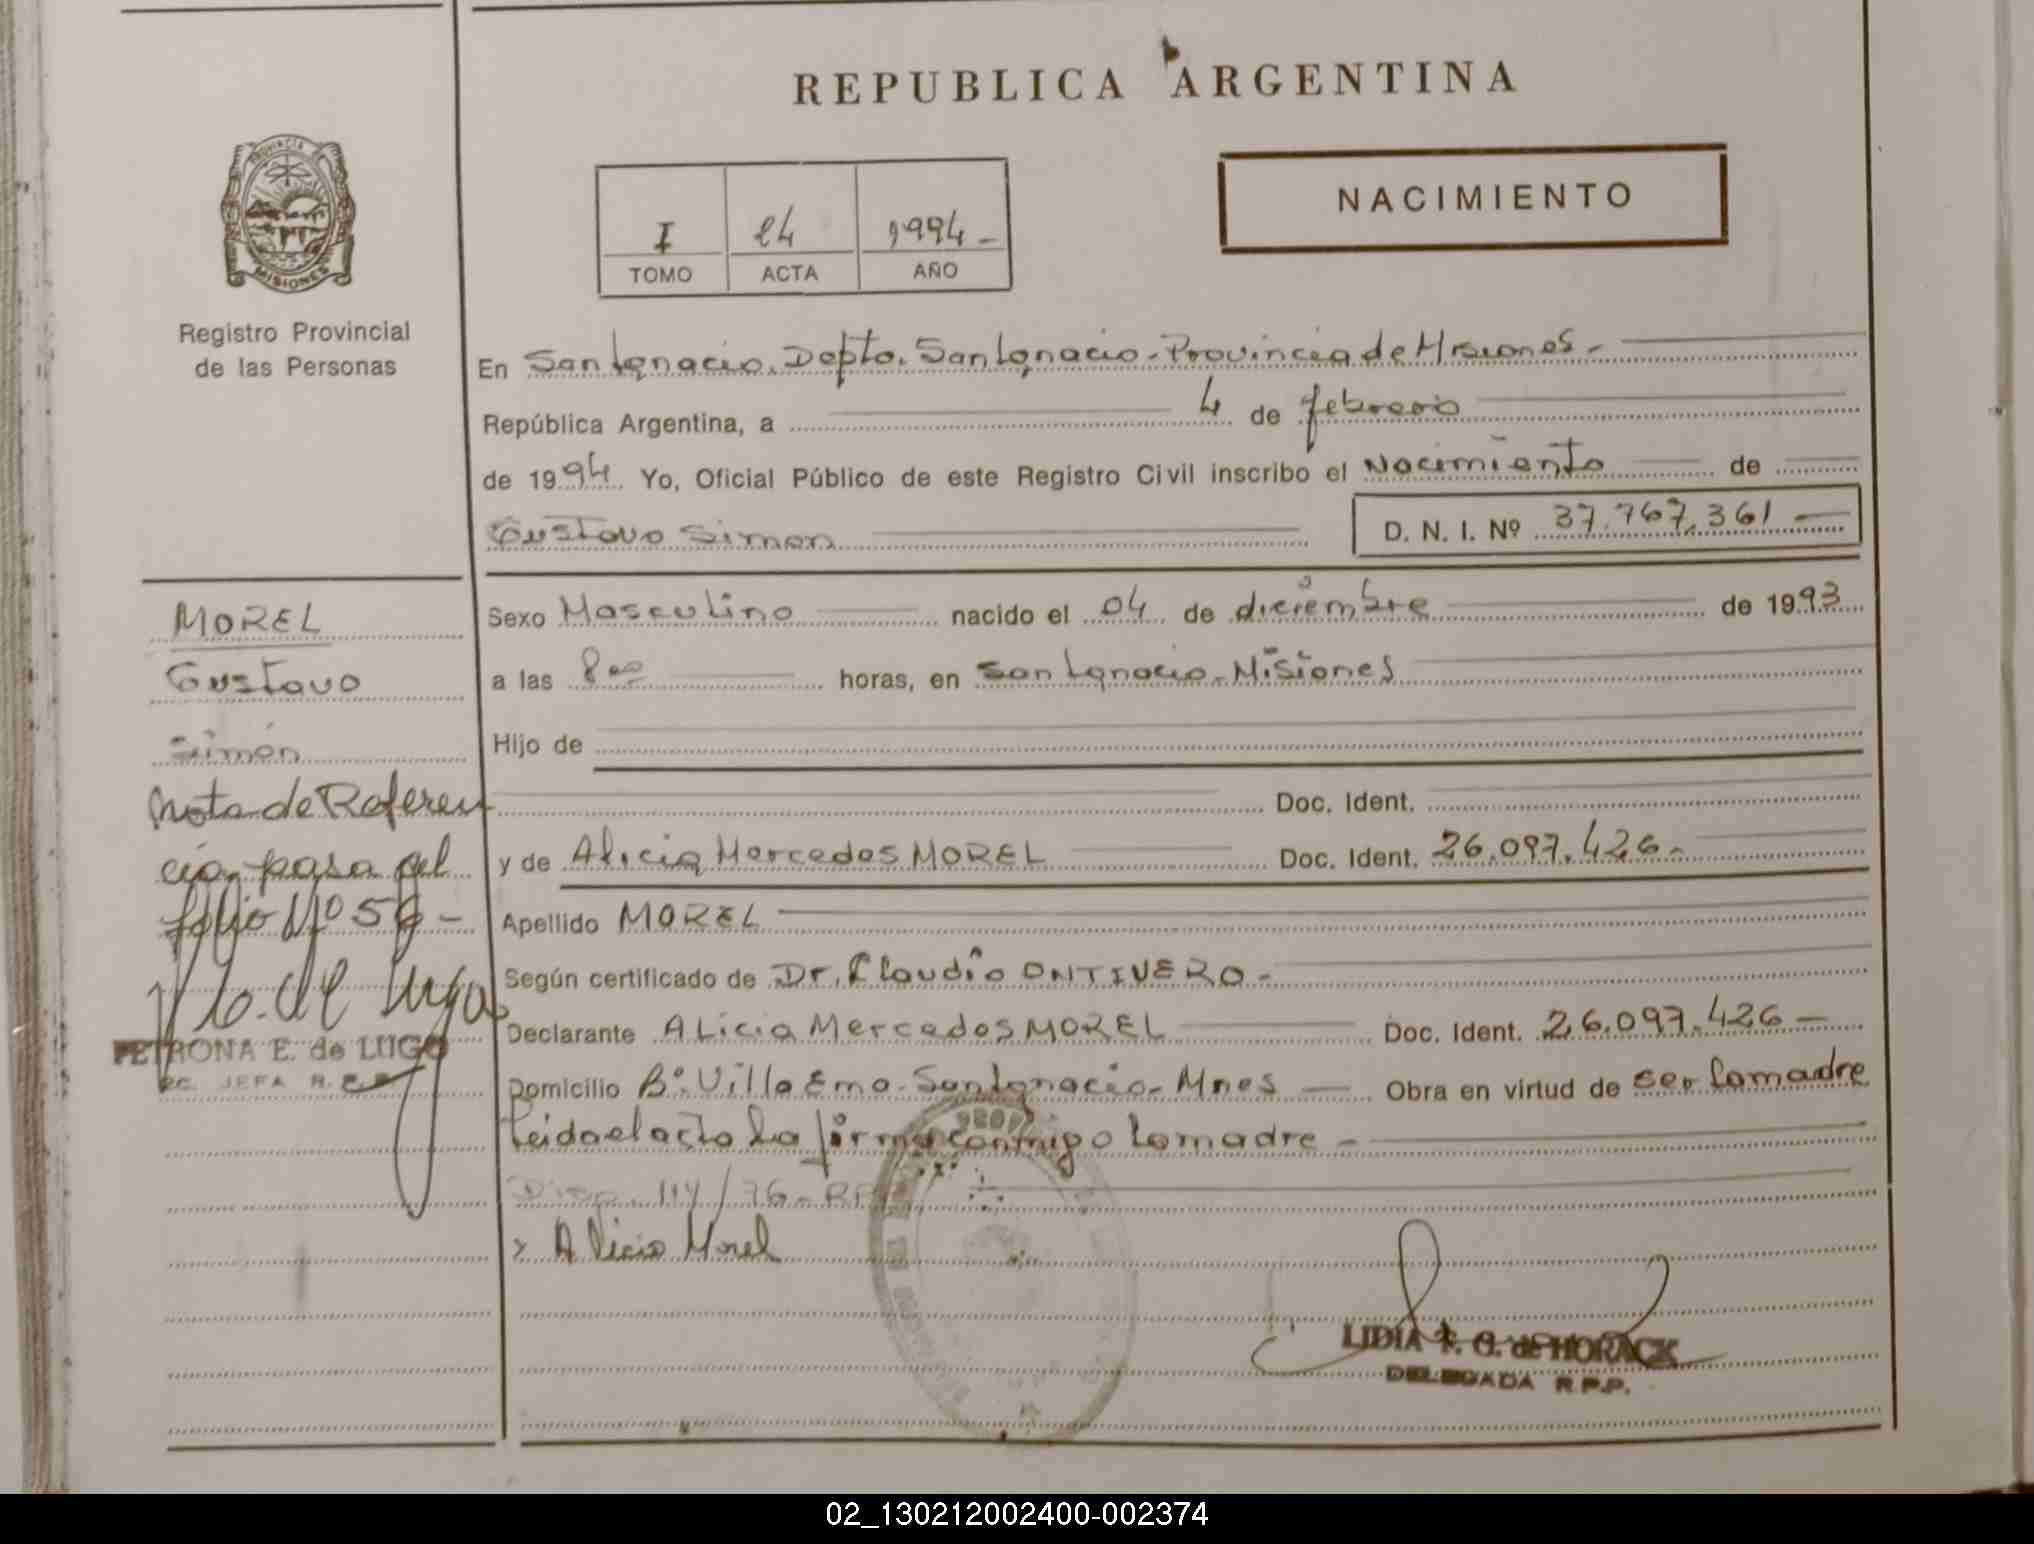 REPUBLICA ARGENTINA
PROVINCIA DE
MISIONES
Registro Provincial
de las Personas
I 24 1994-
TOMO ACTA AÑO
NACIMIENTO
En San Ignacio. Depto. San Ignacio - Provincia de Misiones -
República Argentina, a 4 de febrero
de 1994 Yo, Oficial Público de este Registro Civil inscribo el Nacimiento de
Gustavo Simon
D. N. I. Nº 37.767.361
Sexo Masculino nacido el 04 de diciembre de 1993
a las 8 horas, en San Ignacio - Misiones
Hijo de
Doc. Ident.
y de Alicia Mercedes MOREL Doc. Ident. 26.097.426-
Apellido MOREL
Según certificado de Dr. Claudio ONTIVERO -
Declarante Alicia Mercedes MOREL Doc. Ident. 26.097.426 -
Domicilio Bº. Villa Ema - San Ignacio - Mnes Obra en virtud de ser la madre
Leida el acta la firma conmigo la madre -
Disp. 114/76 - RP
Alicia Morel
LIDIA F. G. de HORACK
DELEGADA R.P.P.
MOREL
Gustavo
Simón
Nota de Referen
cia pasa al
folio Nº
de Lugo
PETRONA E. de LUGO
JEFA R.
02_130212002400-002374